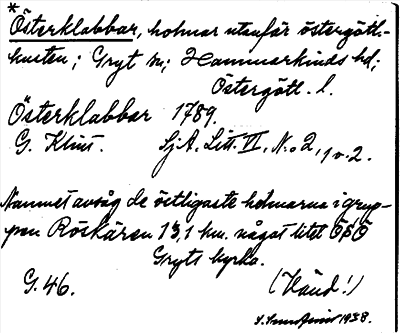 *
Österklabbar, holmar utanför östergötl.-
kusten; Gryt sn; Hammarkinds hd;
Östergötl. l.
Österklabbar 1789.
G. Klint. SjA. Litt. II, N:o 2, 1 v. 2.
Namnet avsåg de östligaste holmarna i grup-
pen Röskären 13,1 km. något litet ÖSÖ
Gryts kyrka.
G. 46. (Händ!)
1938.